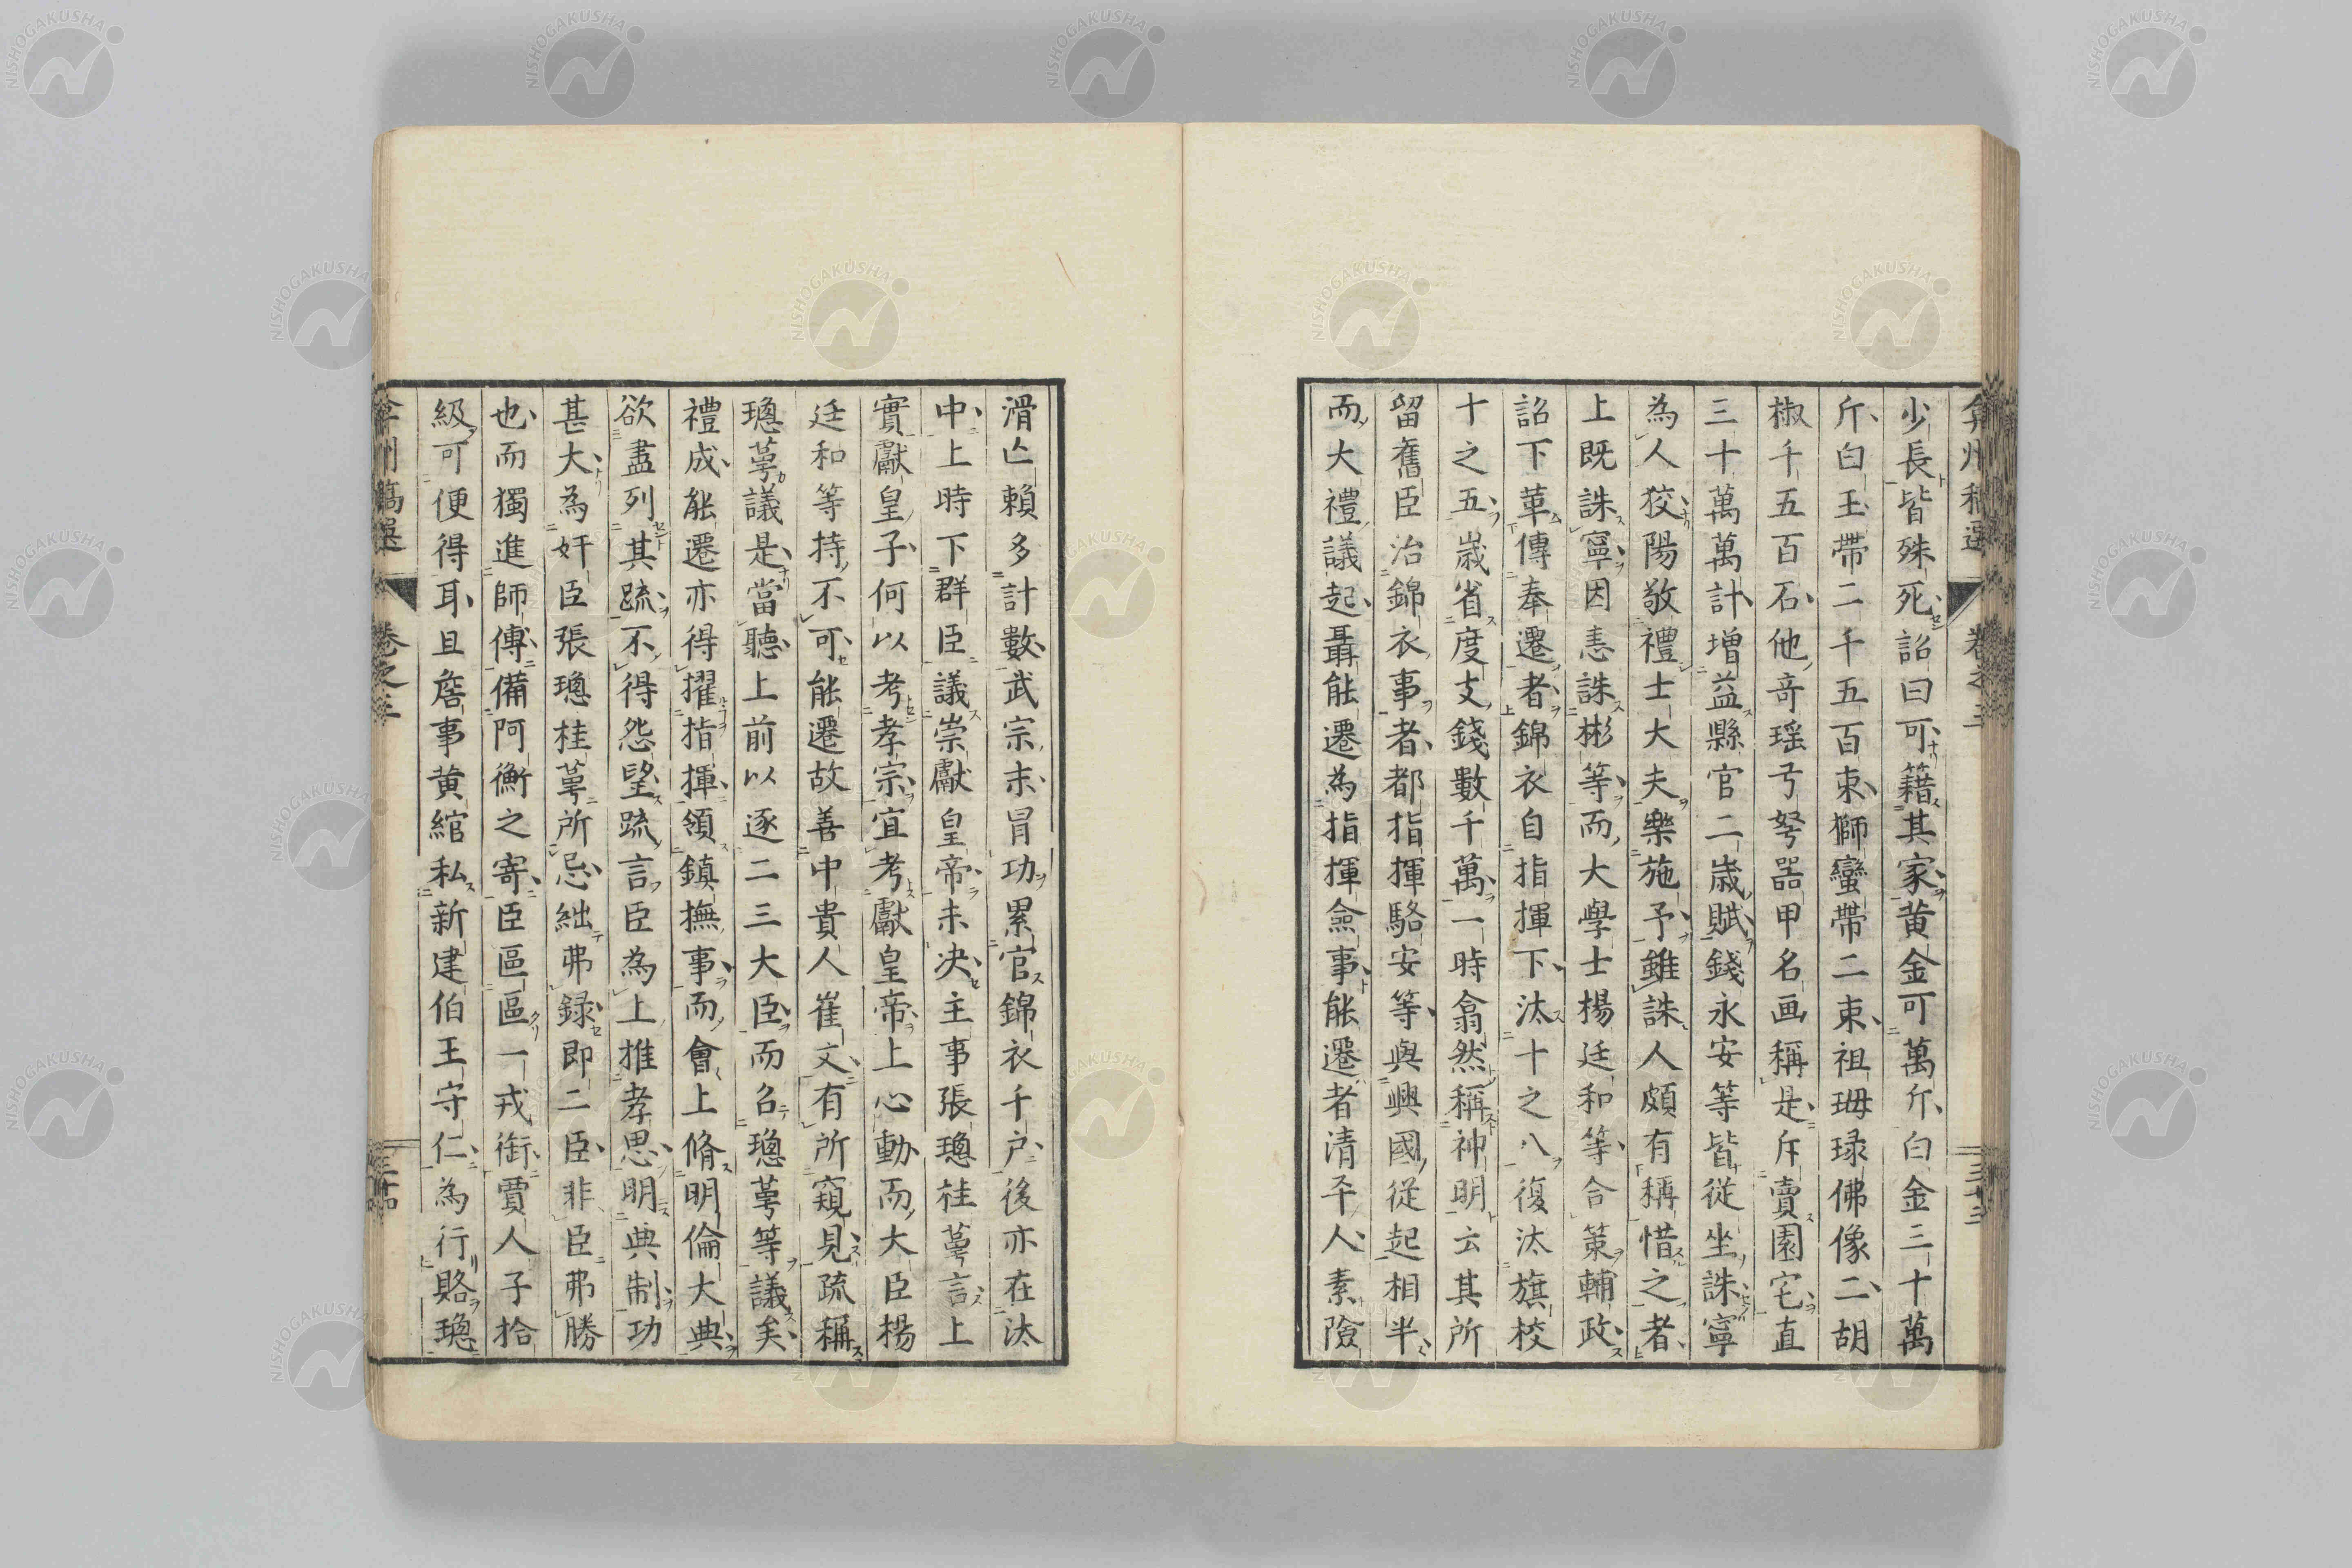 少長皆殊死詔曰可籍其家黄金可萬斤白金三十萬
斤白玉帶二千五百束獅蠻帶二束祖母琭佛像二胡
椒千五百石他竒瑶弓弩噐甲名画稱是斥賣園宅直
三十萬萬計増益縣官二歳賦錢永安等皆從坐誅寧
為人狡陽敬禮士大夫樂施予雖誅人頗有稱惜之者
上既誅寧因恚誅彬等而大學士楊廷和等合策輔政
詔下革傳奉遷者錦衣自指揮下汰十之八復汰旗校
十之五歳省度支錢數千萬一時翕然稱神明云其所
留舊臣治錦衣事者都指揮駱安等與興國從起相半
而大禮議起聶能遷為指揮僉事能遷者清平人素險
滑亡賴多計數武宗末冒功累官錦衣千户後亦在汰
中上時下群臣議崇獻皇帝未决主事張璁桂萼言上
實獻皇子何以考孝宗宜考獻皇帝上心動而大臣楊
廷和等持不可能遷故善中貴人崔文有所窺見疏稱
璁萼議是當聽上前以逐二三大臣而召璁萼等議矣
禮成能遷亦得擢指揮領鎮撫事而會上脩明倫大典
欲盡列其疏不得怨望疏言臣為上推孝思明典制功
甚大為奸臣張璁桂萼所忌絀弗録即二臣非臣弗勝
也而獨進師傅備阿衡之寄臣區區一戎銜賈人子拾
級可便得耳且詹事黄綰私新建伯王守仁為行賂璁